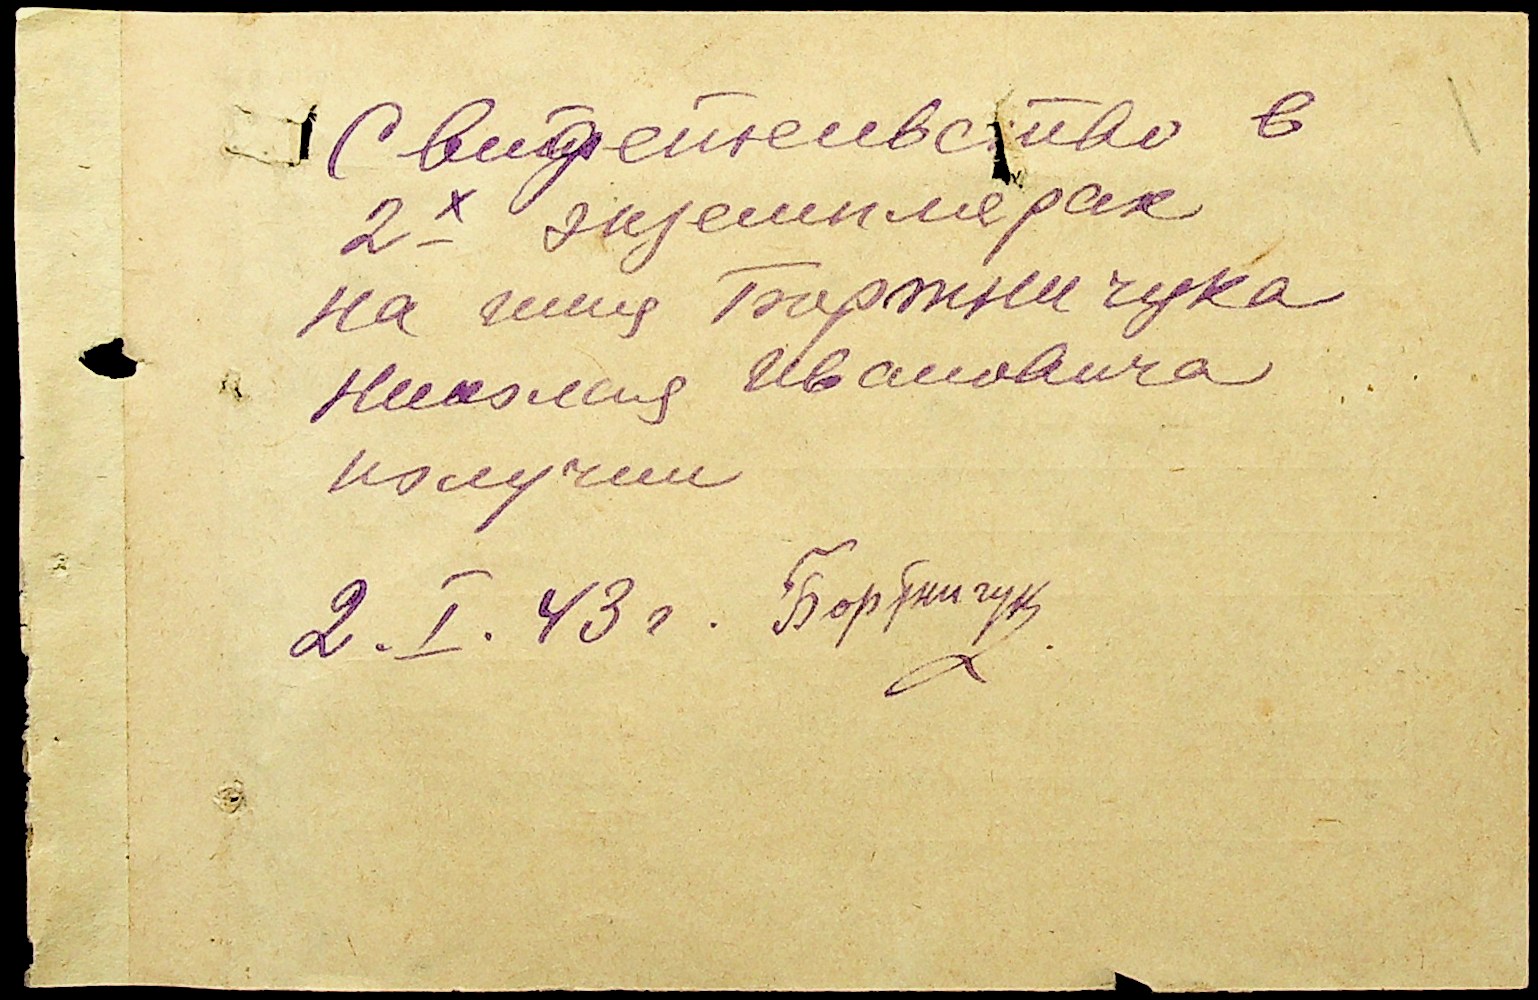 Свидетельство в
2х экземплярах
на имя Бортничука
Николая Ивановича
получил
2.I.43 г. Бортничук